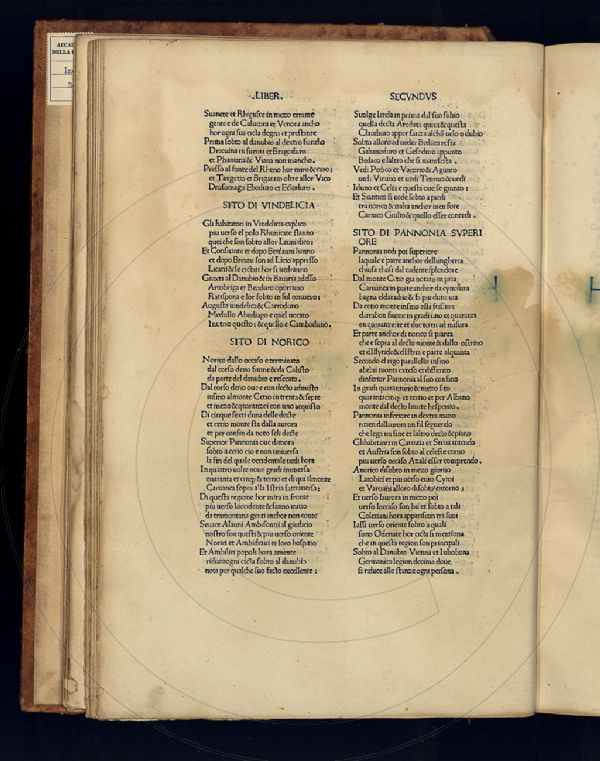 ACCA
DELLA C
In
.LIBER.
Suanete et Rhiguste in mezo errante
gente e de Caluconi et Venona ancho
hor ogni sua cicta degna et prestante
Prima sobto al danubio al dextro fiancho
Dracuina in furniti et Bragoduro
et Phaniana & Viana non mancho.
Presso al fonte del Rheno hor miro & curo
et Taxgetio et Brigantio oltre allor Vico
Drusomago Eboduro et Ectoduro.
SITO DI VINDELICIA
Gli habitatori in Vindelicia explico
piu uerso el polo Rhunicate stanno
quei che son sobto allor Leuni dico:
Et Consuante et dopo Benlauni hanno
et dopo Breuni son ad Licio appresso
Licatii & le cictati hor si uedranno
Canuta al Danubio & in Bauara adesso
Artobriga et Beoduro oportuno
Ratispona e lor sobto in sul
Augusta uindelica & Carroduno
Medullo Abudiaco e quel uocato
Inutrio questo: & quello e Cambodono.
SITO DI NORICO
Norico dallo occaso e terminato
dal corso deno fiume & da Calisto
da parte del danubio e reserato.
Dal corso deno oue e con decto admisto
infino almonte Cetio in trenta & septe
et mezo & quarantasei con uno aquisto
Di cinque sexti duna delle decte
et cetio monte sta dalla aurora
et per confin da noto seli decte
Superior Pannonia oue dimora
sobto a cetio cio e non uniuersa
la fin del quale occidentale uedi hora
In quatro uolte noue gradi immersa
quaranta et cinq & terzo e di qui almonte
Caruanca sopra alla Istria
Di questa regione hor mira in fronte
piu uerso loccidente & fanno inuito
da tramontana genti anchor non conte
Seuace Alauni Ambisontii al giudicio
nostro son questi & piu uerso oriente
Norici et Ambidraui et loro hospitio
Et Ambiliti popoli hora amente
riduci ogni cicta sobto al danubio
nota per qualche suo facto excellente:
SECVNDVS
Suolge latela in prima dal suo subio
quella decta Aredata quiui & questa
Claudiuio appar sanza alchũ uelo o dubio
Sobto alloro ad ueder Bedaco resta
Gabanoduro et Gesoduro appunto
Bedaco e laltro che si manifesta.
Vedi Pedico et Vacorio & Agunto
uedi Viruno et uedi Teurnia & uedi
Iduno et Celia e questa oue se giunto:
Et Siantico si uede sobto a piedi
tra norico & italia anchor uien fore
Carnico Giulio & quello esser concedi.
SITO DI PANNONIA SVPERI
ORE
Pannonia uedi poi superiore
laquale e parte anchor dellungheria
chiusa chosi dal cadente splendore
Dal monte Citio gia notato in pria
Caruanca in parte anchor da cynosura
bagna el danubio & fa piu duna uia
Da cetio monte infino alla fissura
darrabon fiume in gradi uno et quaranta
en quarantasette et due terzi ad misura
Et parte anchor di norico si pianta
che e sopra al decto monte & dallo ostrino
et dIllyride & dIstria e parte alquanta
Secondo el rigo parallello infino
abelai monti exteso et differito
dinferior Pannonia al suo confino
In gradi quarantuno & mezo sito
quaranta cinq: et terzo et per Albano
monte dal decto limite hespetito.
Pannonia inferiore in dextra mano
uien dallaurora un fil seguendo
che lega un fine et laltro decto & piano
Gli habitatori in Carintia et Stiria intendo
et Austria son sobto al celeste corno
piu uerso occaso Azali esser comprendo.
Anorici disobto in mezo giorno
Latobici et piu uerso euro Cytni
et Varciani alloro disobto & entorno a
Et uerso laurora in mezo poi
uerso loccaso son bai et sobto a tali
Coletiani hora appariscon tra suoi
Iassi uerso oriente sobto a quali
sono Oseriate hor cicta si mentiona
che in quella region son principali
Sobto al Danubio Vienna et Iuliobona
Germanica legion decima doue
si riduce alle stanze ogni persona.